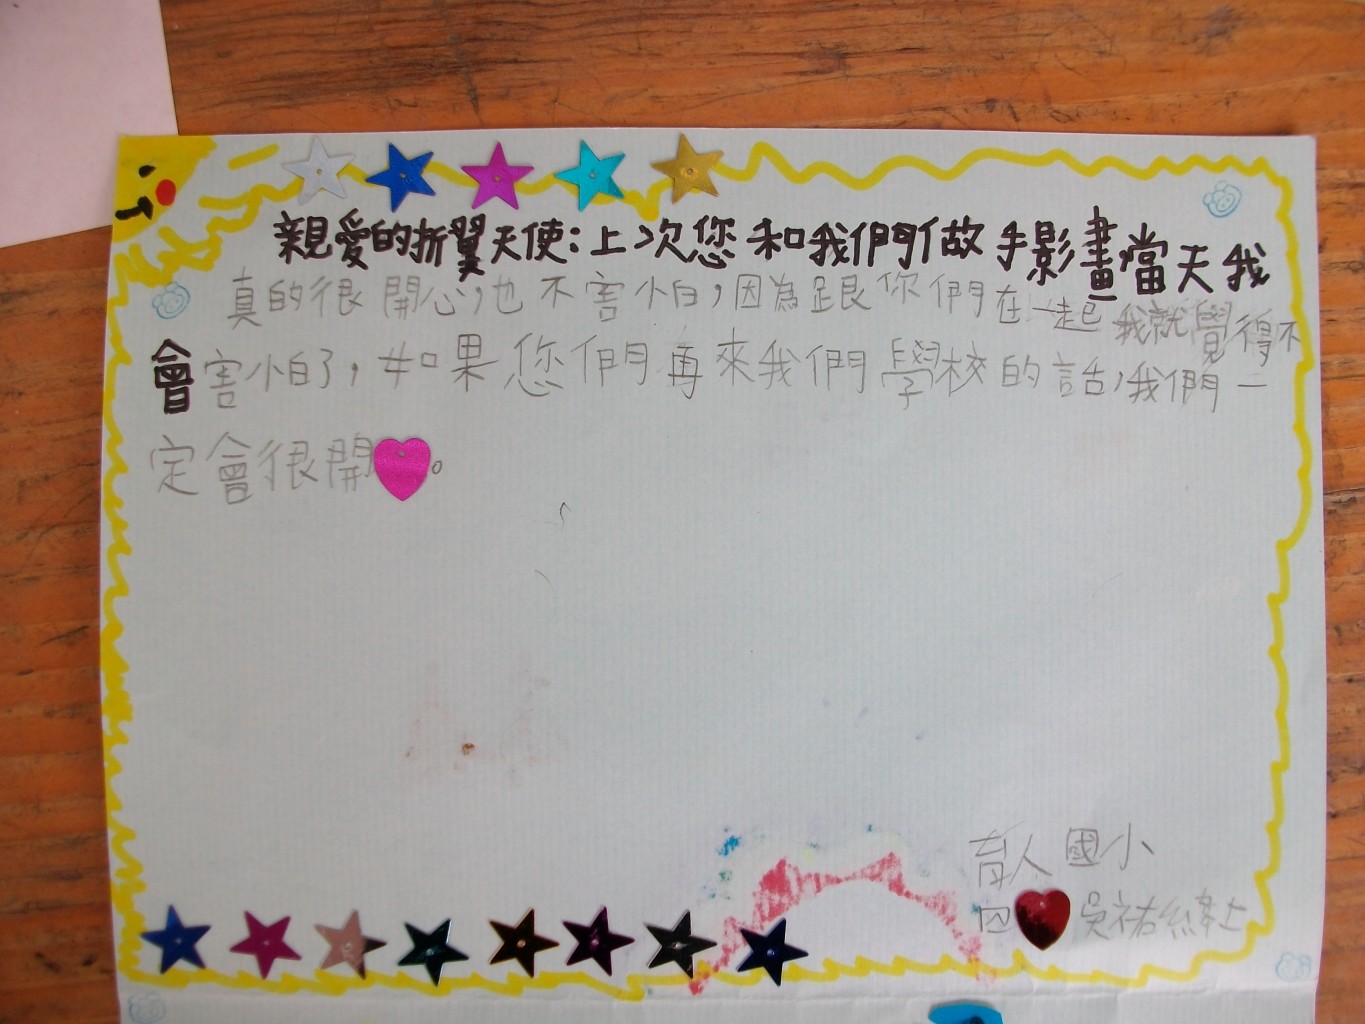 親愛的折翼天使:上次您和我們做手影畫當天我
真的很開心,也不害怕,因為跟你們在一起我就覺得不
會害怕了,如果您們再來我們學校的話,我們一
定會很開。
育人國小
吳祐綵上